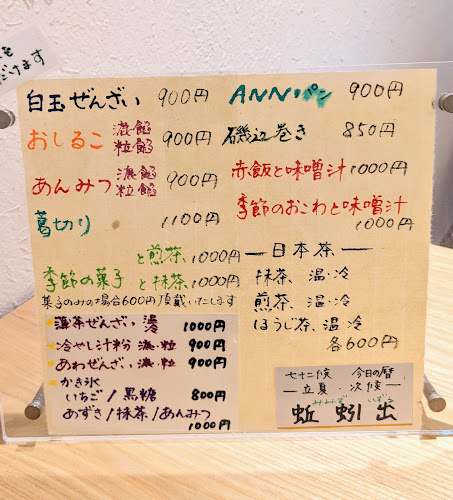 を
だけます
白玉ぜんざい 900円
おしるこ 漉餡 粒餡 900円
あんみつ 漉餡 粒餡 900円
葛切り 1100円
季節の菓子 と煎茶 1000円
と抹茶 1000円
菓子のみの場合600円頂戴いたします
薄茶ぜんざい 温 冷 1000円
冷やし汁粉 漉・粒 900円
あわぜんざい、漉・粒 900円
かき氷
いちご/黒糖 800円
あずき/抹茶/あんみつ
1000円
ANN・パン 900円
磯辺巻き 850円
赤飯と味噌汁 1000円
季節のおこわと味噌汁
1000円
― 日本茶 ―
抹茶、温・冷
煎茶、温・冷
ほうじ茶、温・冷
各600円
七十二候 今日の暦
― 立夏・次候 ―
みみず いずる
蚯蚓出